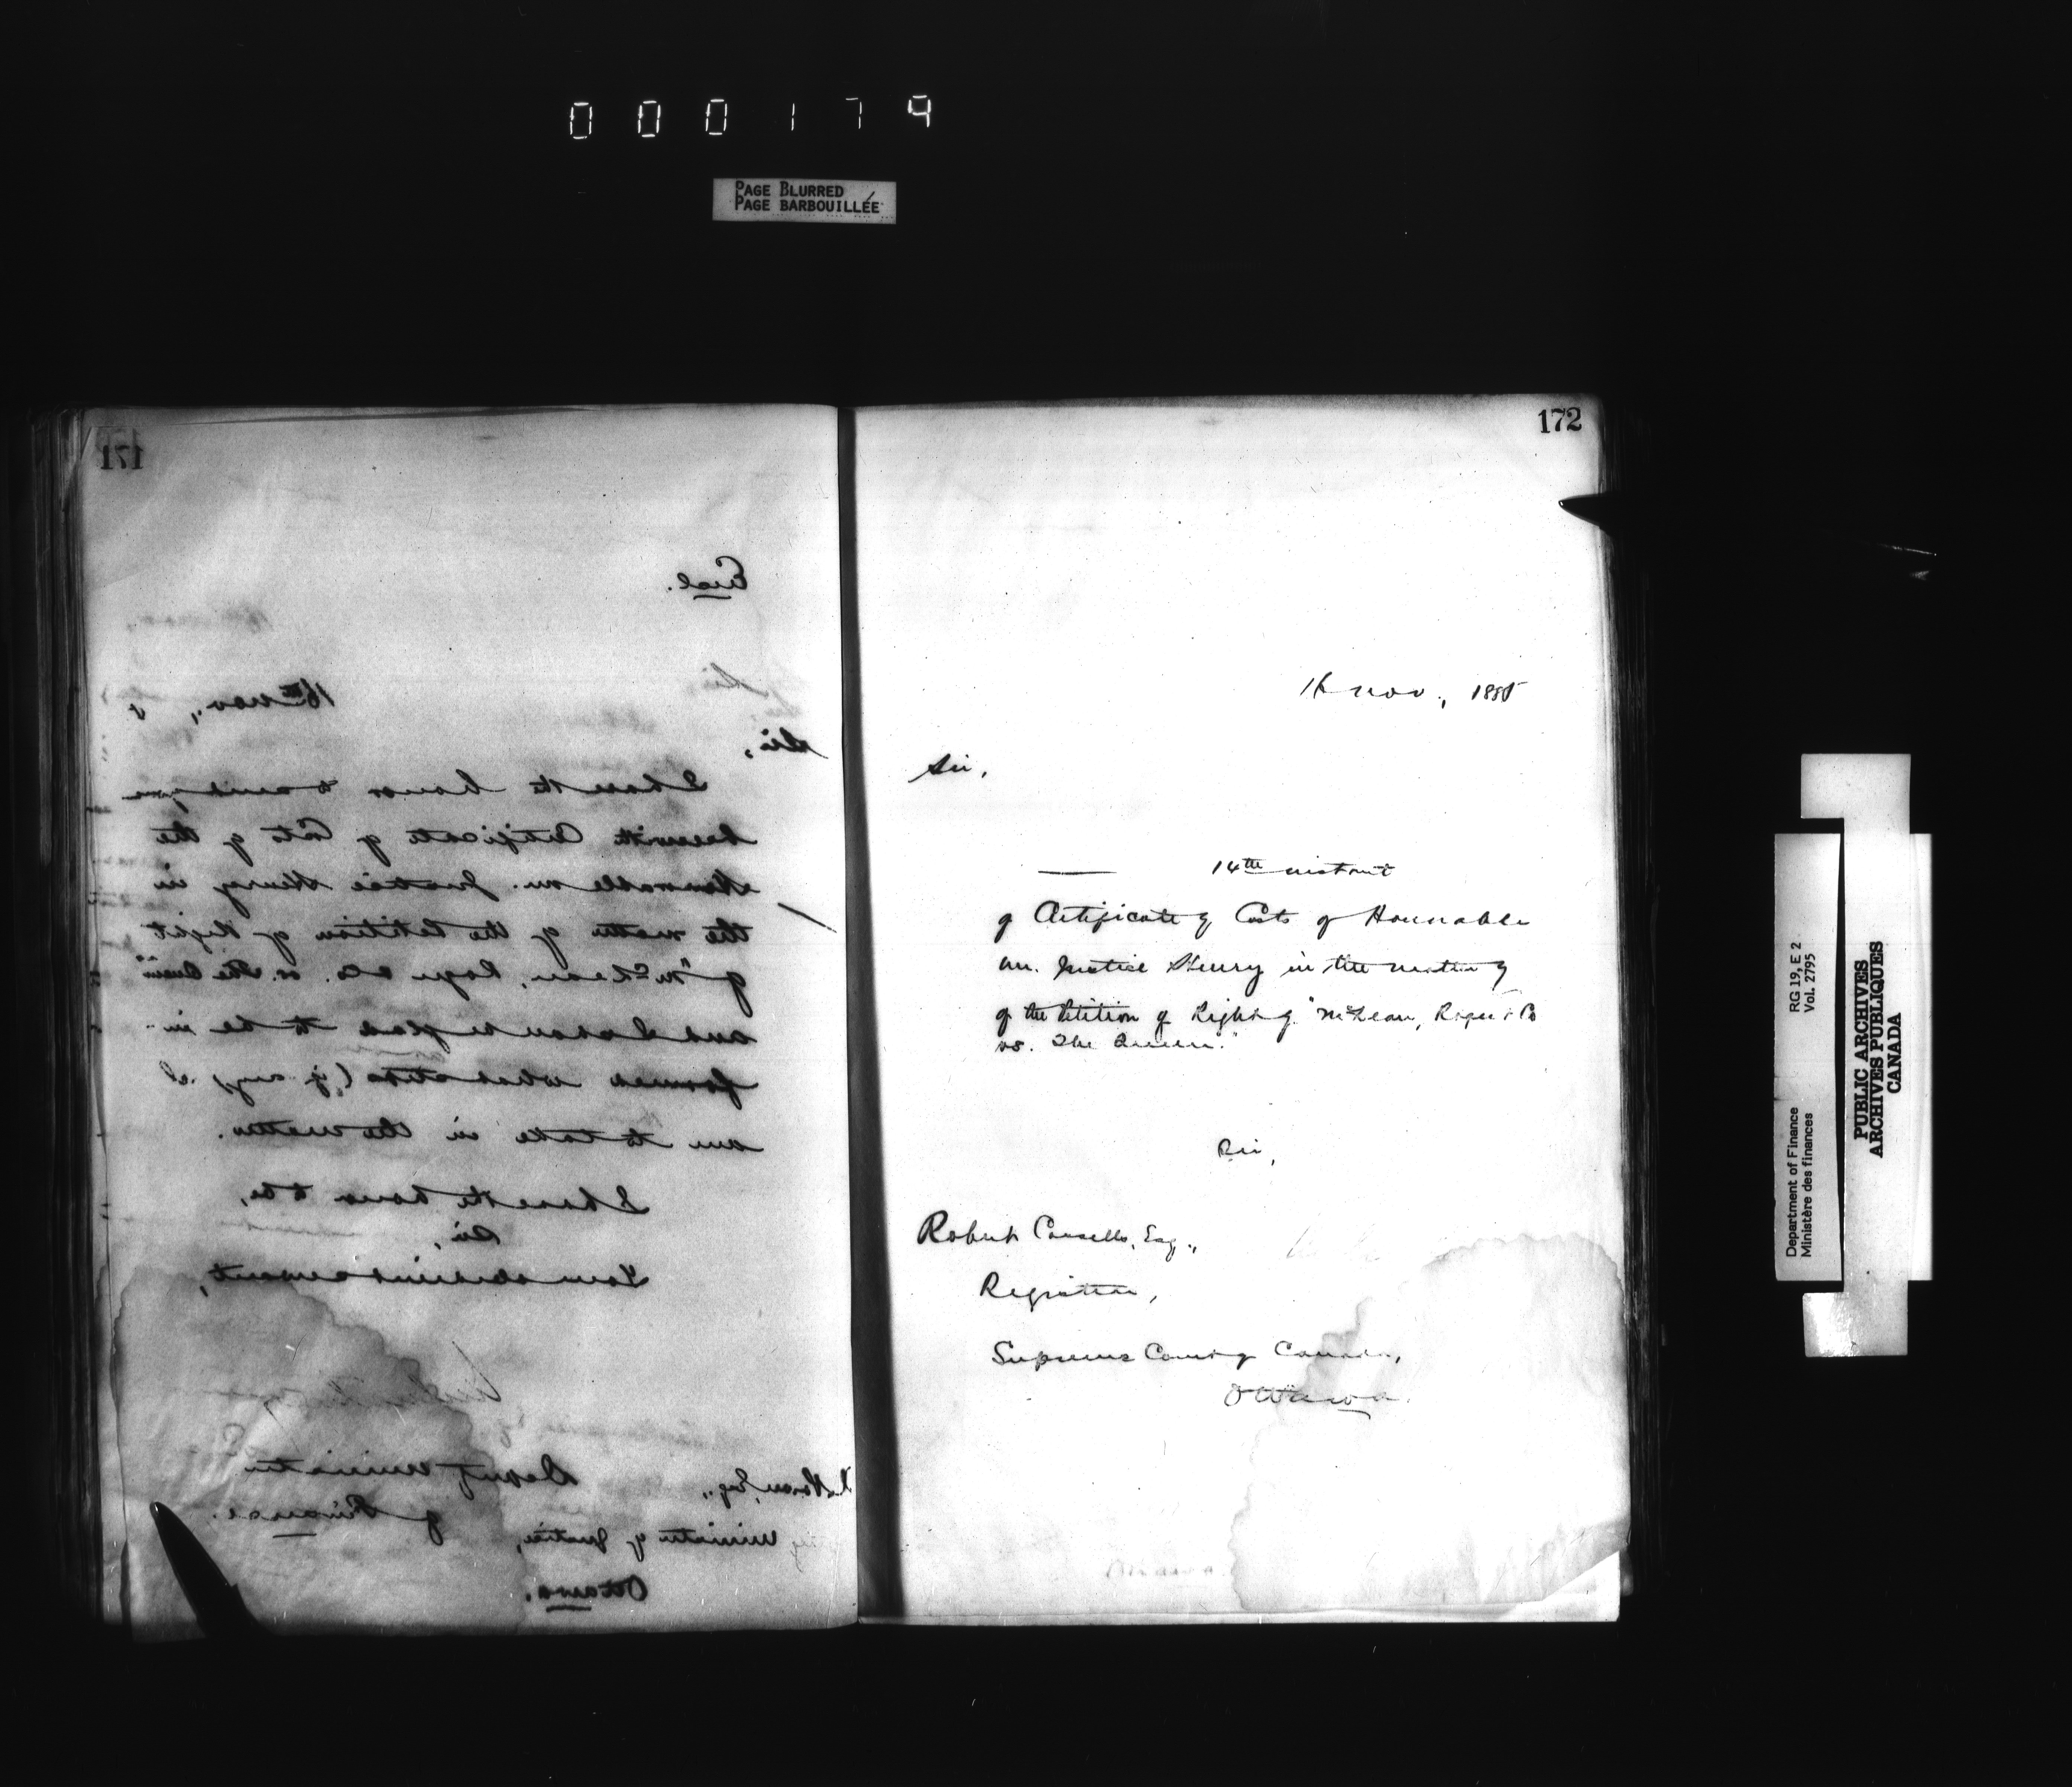 000179
PAGE BLURRED
PAGE BARBOUILLÉE
171
Encl.
16th Nov.,
Sir,
I have the honor to send you
herewith Certificate of Costs of the
Honorable Mr. Justice Henry in
the matter of the Petition of Right
of "McLean, Roger & Co. vs. The Queen"
and I shall be glad to be in-
formed what steps (if any) I
am to take in the matter.
I have the honor to be,
Sir,
Your obedient servant,
Deputy Minister
of Finance.
Esq.,
Minister of Justice,
Ottawa.
172
16 Nov., 1885
Sir,
14th instant
of Certificate of Costs of Honorable
Mr. Justice Henry in the matter of
of the Petition of Right of "McLean, Roger & Co
vs. The Queen."
Sir,
Robert Cassells, Esq.,
Registrar,
Supreme Court of Canada,
Ottawa.
Department of Finance RG 19, E 2
Ministère des finances Vol. 2795
PUBLIC ARCHIVES
ARCHIVES PUBLIQUES
CANADA